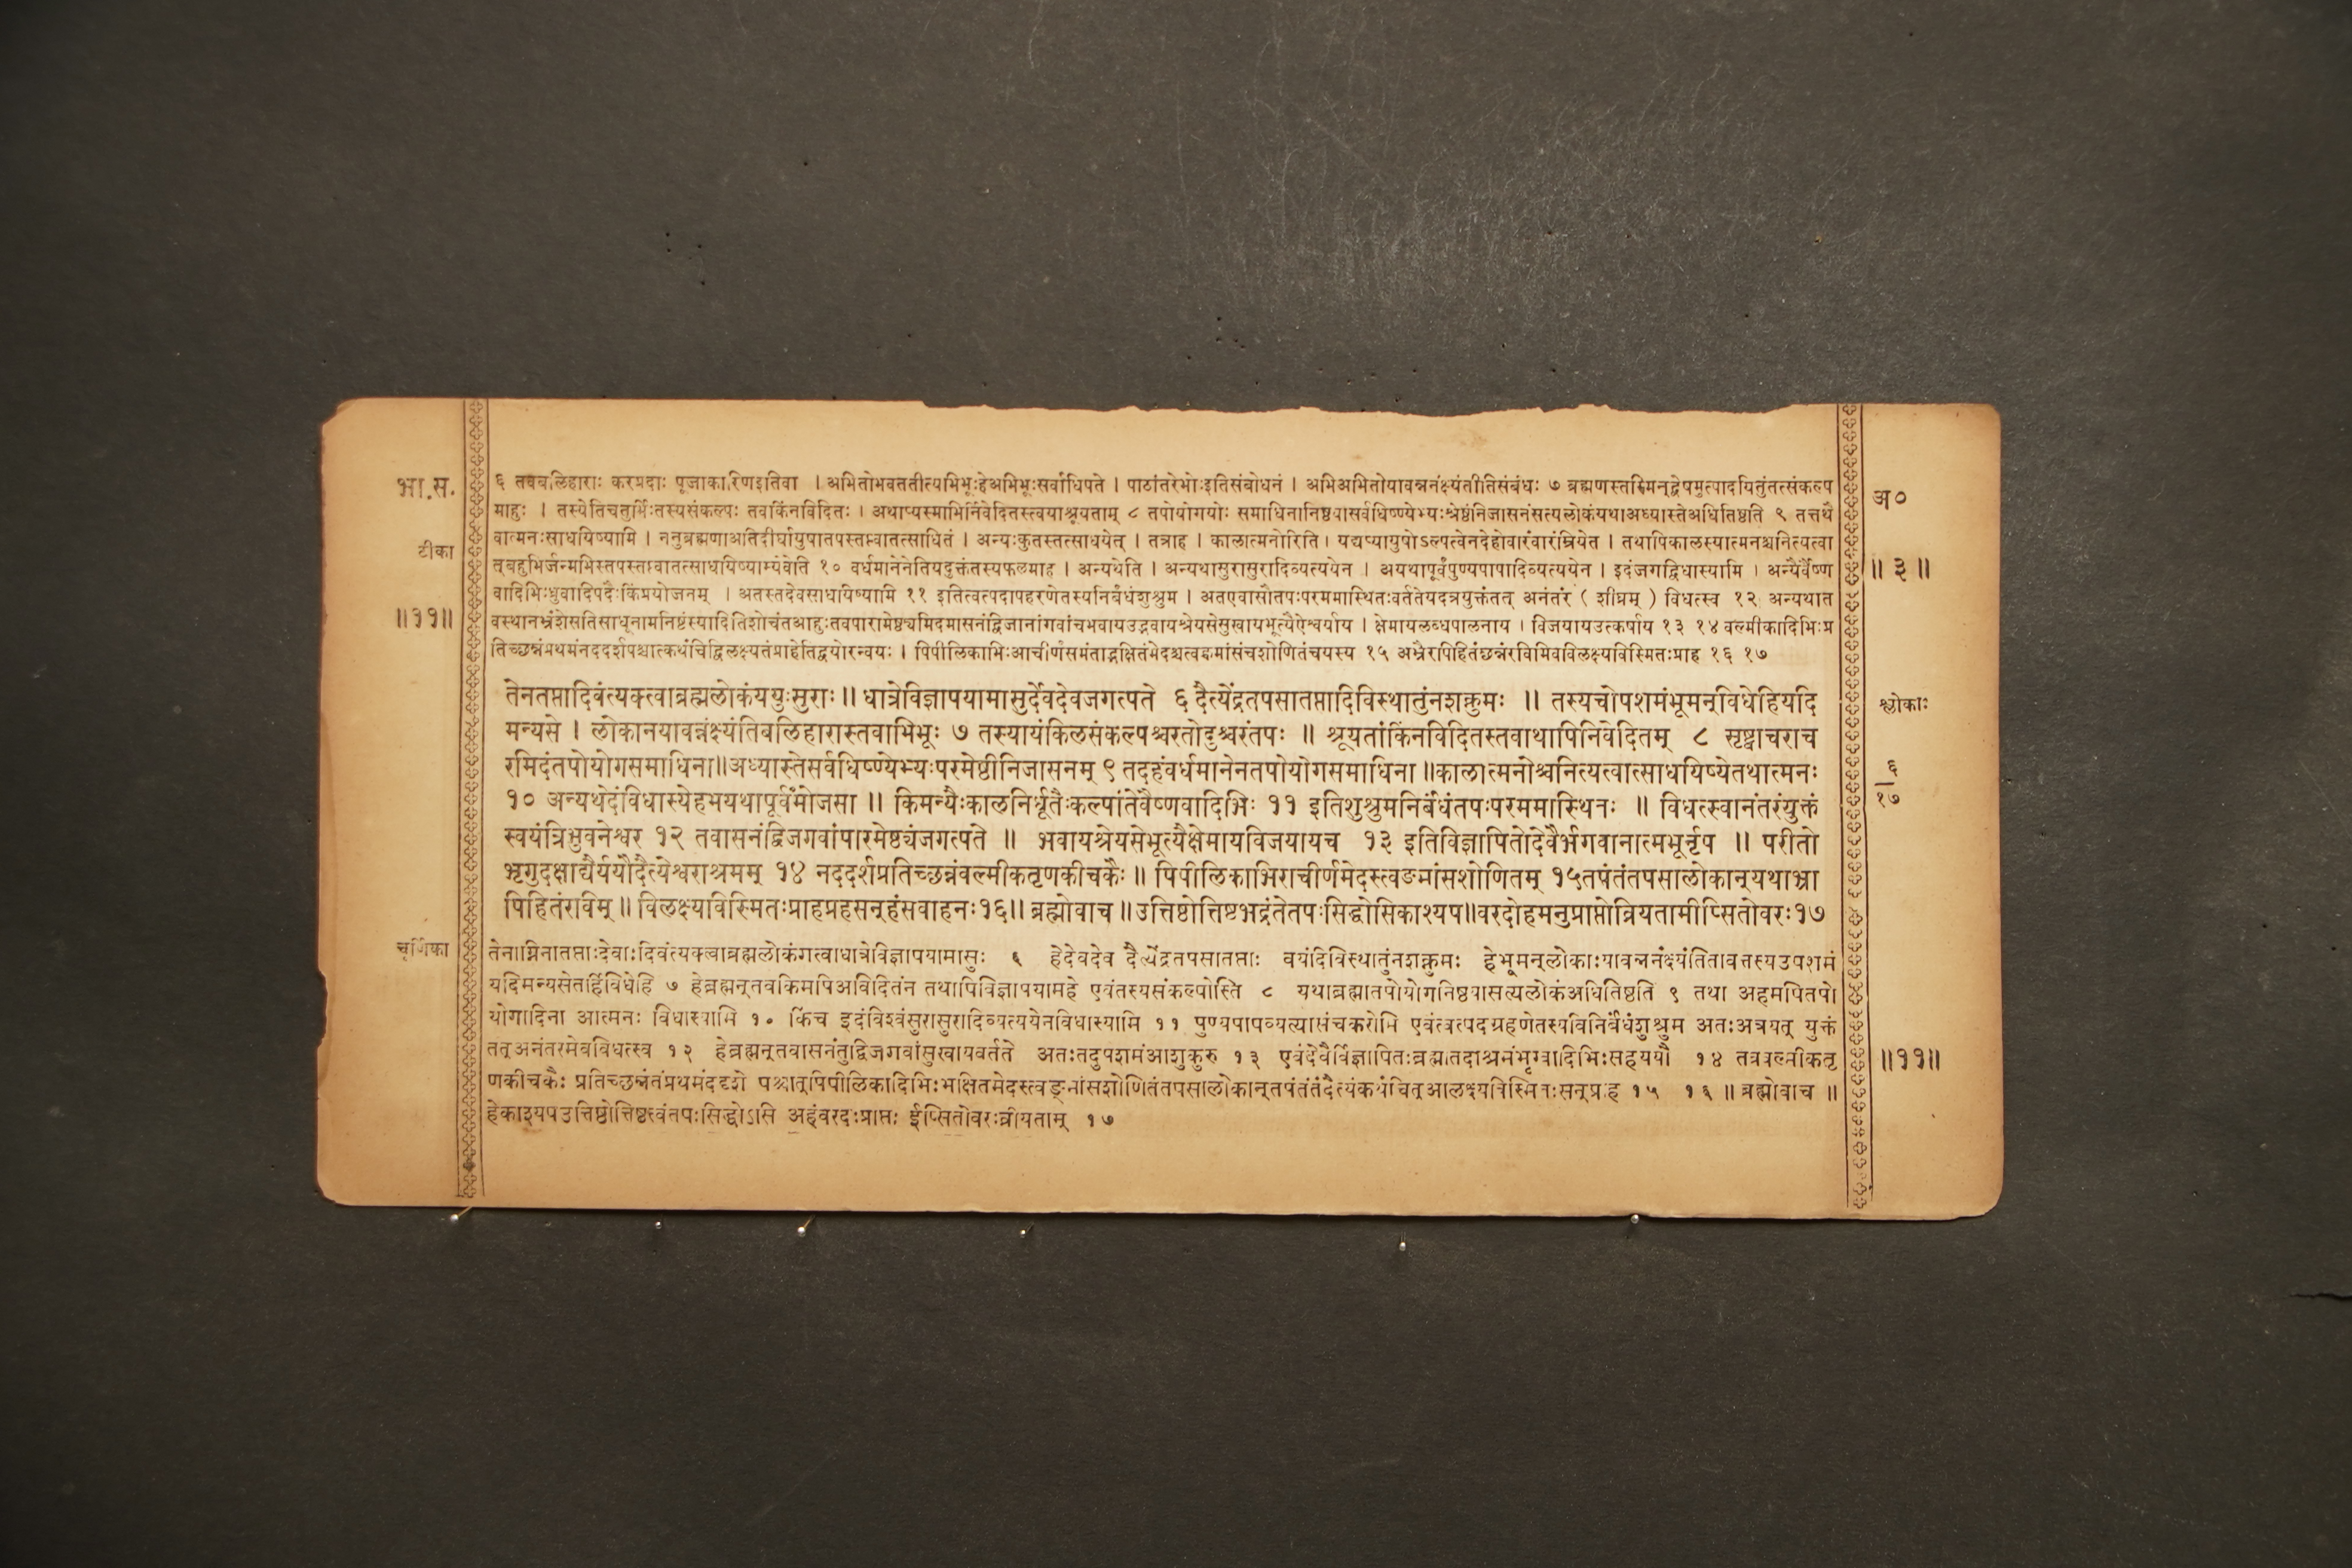 भा.स.
टीका
॥११॥
६ तवबलिहाराः करप्रदाः पूजाकारिणइतिवा । अभितोभवततीत्यभिभूःहेअभिभूःसर्वाधिपते । पाठांतरेभोःइतिसंबोधनं । अभिअभितोयावन्ननंक्ष्यंतीतिसंबंधः ७ ब्रह्मणस्तस्मिन्द्वेषमुत्पादयितुंतत्संकल्प
माहुः । तस्येतिचतुर्भिःतस्यसंकल्पः तवकिंनविदितः । अथाप्यस्माभिर्निवेदितस्त्वयाश्रूयताम् ८ तपोयोगयोः समाधिनानिष्ठयासर्वधिष्ण्येभ्यःश्रेष्ठंनिजासनंसत्यलोकंयथाअध्यास्तेअधितिष्ठति ९ तत्तथै
वात्मनःसाधयिष्यामि । ननुब्रह्मणाअतिदीर्घायुषातपस्तप्त्वातत्साधितं । अन्यःकुतस्तत्साधयेत् । तत्राह । कालात्मनोरिति । यद्यप्यायुषोऽल्पत्वेनदेहोवारंवारंम्रियेत । तथापिकालस्यात्मनश्चनित्यत्वा
त्बहुभिर्जन्मभिस्तपस्तप्त्वातत्साधयिष्याम्येवेति १० वर्धमानेनेतियदुक्तंतस्यफलमाह । अन्यथेति । अन्यथासुरासुरादिव्यत्ययेन । अयथापूर्वंपुण्यपापादिव्यत्ययेन । इदंजगद्विधास्यामि । अन्यैर्वैष्ण
वादिभिःध्रुवादिपदैःकिंप्रयोजनम् । अतस्तदेवसाधयिष्यामि ११ इतित्वत्पदापहरणेतस्यनिर्बंधंशुश्रुम । अतएवासौतपःपरममास्थितःवर्ततेयदत्रयुक्तंतत् अनंतरं ( शीघ्रम् ) विधत्स्व १२ अन्यथात
वस्थानभ्रंशेसतिसाधूनामनिष्टंस्यादितिशोचंतआहुःतवपारामेष्ठ्यमिदमासनंद्विजानांगवांचभवायउद्भवायश्रेयसेसुखायभूत्यैऐश्वर्याय । क्षेमायलब्धपालनाय । विजयायउत्कर्षाय १३ १४ वल्मीकादिभिःप्र
तिच्छन्नंप्रथमंनददर्शपश्चात्कथंचिद्विलक्ष्यतंप्राहेतिद्वयोरन्वयः । पिपीलिकाभिःआचीर्णंसमंताद्भक्षितंमेदश्चत्वङ्मांसंचशोणितंचयस्य १५ अभ्रैरपिहितंछन्नंरविमिवविलक्ष्यविस्मितःप्राह १६ १७
तेनतप्तादिवंत्यक्त्वाब्रह्मलोकंययुःसुराः॥ धात्रेविज्ञापयामासुर्देवदेवजगत्पते ६ दैत्येंद्रतपसातप्तादिविस्थातुंनशक्नुमः ॥ तस्यचोपशमंभूमन्विधेहियदि
मन्यसे । लोकानयावन्नंक्ष्यंतिबलिहारास्तवाभिभूः ७ तस्यायंकिलसंकल्पश्चरतोदुश्चरंतपः ॥ श्रूयतांकिंनविदितस्तवाथापिनिवेदितम् ८ सृष्ट्वाचराच
रमिदंतपोयोगसमाधिना॥अध्यास्तेसर्वधिष्ण्येभ्यःपरमेष्ठीनिजासनम् ९ तदहंवर्धमानेनतपोयोगसमाधिना ॥कालात्मनोश्चनित्यत्वात्साधयिष्येतथात्मनः
१० अन्यथेदंविधास्येहमयथापूर्वमोजसा ॥ किमन्यैःकालनिर्धूतैःकल्पांतेवैष्णवादिभिः ११ इतिशुश्रुमनिर्बंधंतपःपरममास्थितः ॥ विधत्स्वानंतरंयुक्तं
स्वयंत्रिभुवनेश्वर १२ तवासनंद्विजगवांपारमेष्ठ्यंजगत्पते ॥ भवायश्रेयसेभूत्यैक्षेमायविजयायच १३ इतिविज्ञापितोदेवैर्भगवानात्मभूर्नृप ॥ परीतो
भृगुदक्षाद्यैर्ययौदैत्येश्वराश्रमम् १४ नददर्शप्रतिच्छन्नंवल्मीकतृणकीचकैः ॥ पिपीलिकाभिराचीर्णमेदस्त्वङ्मांसशोणितम् १५तपंतंतपसालोकान्यथाभ्रा
पिहितंरविम् ॥ विलक्ष्यविस्मितःप्राहप्रहसन्हंसवाहनः१६॥ ब्रह्मोवाच ॥उत्तिष्ठोत्तिष्टभद्रंतेतपःसिद्धोसिकाश्यप॥वरदोहमनुप्राप्तोव्रियतामीप्सितोवरः१७
चूर्णिका
तेनाग्निनातप्ताःदेवाःदिवंत्यक्त्वाब्रह्मलोकंगत्वाधात्रेविज्ञापयामासुः ६ हेदेवदेव दैत्येंद्रतपसातप्ताः वयंदिविस्थातुंनशक्नुमः हेभूमन्लोकाःयावन्ननंक्ष्यंतितावत्तस्यउपशमं
यदिमन्यसेतर्हिविधेहि ७ हेब्रह्मन्तवकिमपिअविदितंन तथापिविज्ञापयामहे एवंतस्यसंकल्पोस्ति ८ यथाब्रह्मातपोयोगनिष्ठयासत्यलोकंअधितिष्ठति ९ तथा अहमपितपो
योगादिना आत्मनः विधास्यामि १० किंच इदंविश्वंसुरासुरादिव्यत्ययेनविधास्यामि ११ पुण्यपापव्यत्यासंचकरोमि एवंत्वत्पदग्रहणेतस्यविनिर्बंधंशुश्रुम अतःअत्रयत् युक्तं
तत्अनंतरमेवविधत्स्व १२ हेब्रह्मन्तवासनंतुद्विजगवांसुखायवर्तते अतःतदुपशमंआशुकुरु १३ एवंदेवैर्विज्ञापितःब्रह्मातदाश्रमंभृग्वादिभिःसहययौ १४ तत्रवल्मीकतृ
णकीचकैः प्रतिच्छन्नंतंप्रथमंददृशे पश्चात्पिपीलिकादिभिःभक्षितमेदस्त्वङ्मांसशोणितंतपसालोकान्तपंतंतंदैत्यंकथंचित्आलक्ष्यविस्मितःसन्प्राह १५ १६ ॥ ब्रह्मोवाच ॥
हेकाश्यपउत्तिष्ठोत्तिष्ठत्वंतपःसिद्धोऽसि अहंवरदःप्राप्तः ईप्सितोवरःव्रीयताम् १७
अ०
॥ ३ ॥
श्लोकाः
६
१७
॥११॥